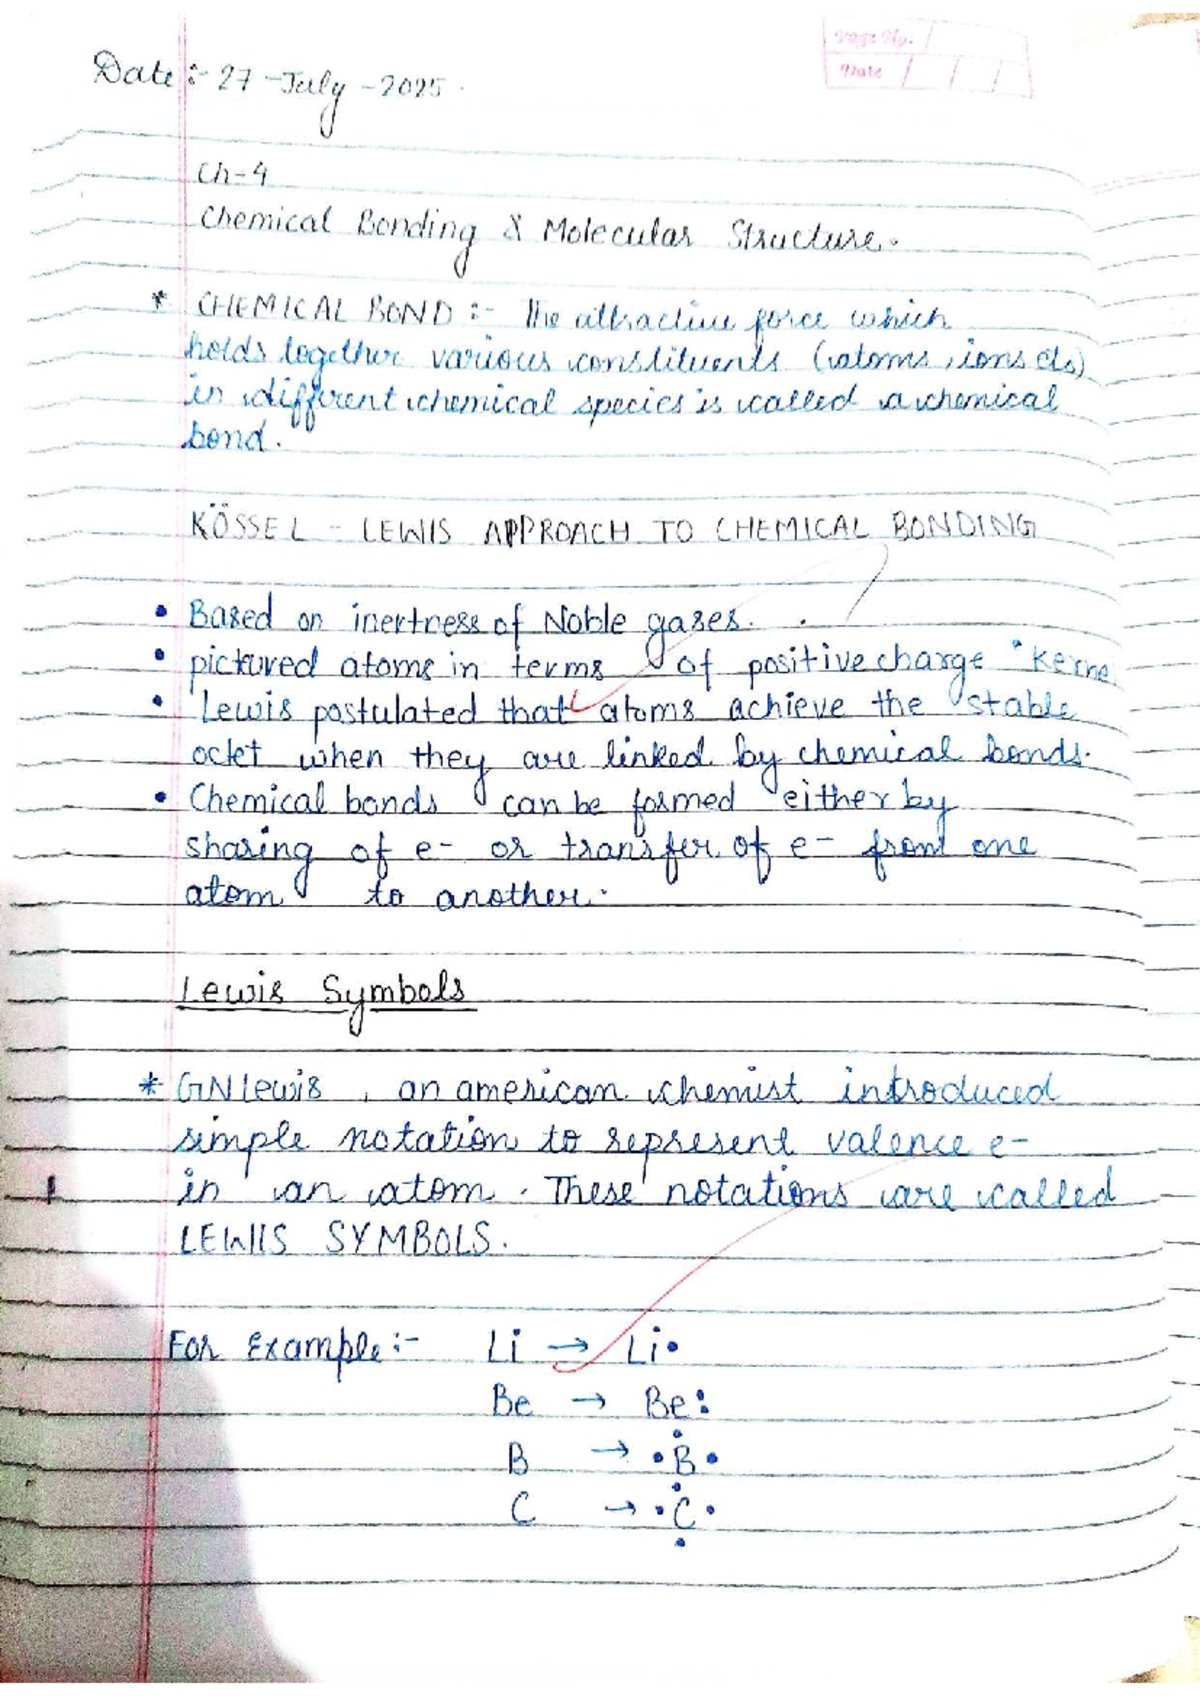 Page No.
Date
Date :- 27-July-2025.
Ch-4
Chemical Bonding & Molecular Structure.
* CHEMICAL BOND :- The attractive force which
holds together various constituents (atoms, ions etc)
in different chemical species is called a chemical
bond.
KÖSSEL - LEWIS APPROACH TO CHEMICAL BONDING
• Based on inertness of Noble gases.
• pictured atoms in terms of positive charge "Kerne
• Lewis postulated that atoms achieve the stable
octet when they are linked by chemical bonds.
• Chemical bonds can be formed either by
sharing of e- or transfer of e- from one
atom to another.
Lewis Symbols
* GN Lewis, an american chemist introduced
simple notation to represent valence e-
in an atom. These notations are called
LEWIS SYMBOLS.
For Example :- Li → Li•
Be → Be:
B → •Ḃ•
C → •Ċ•
•